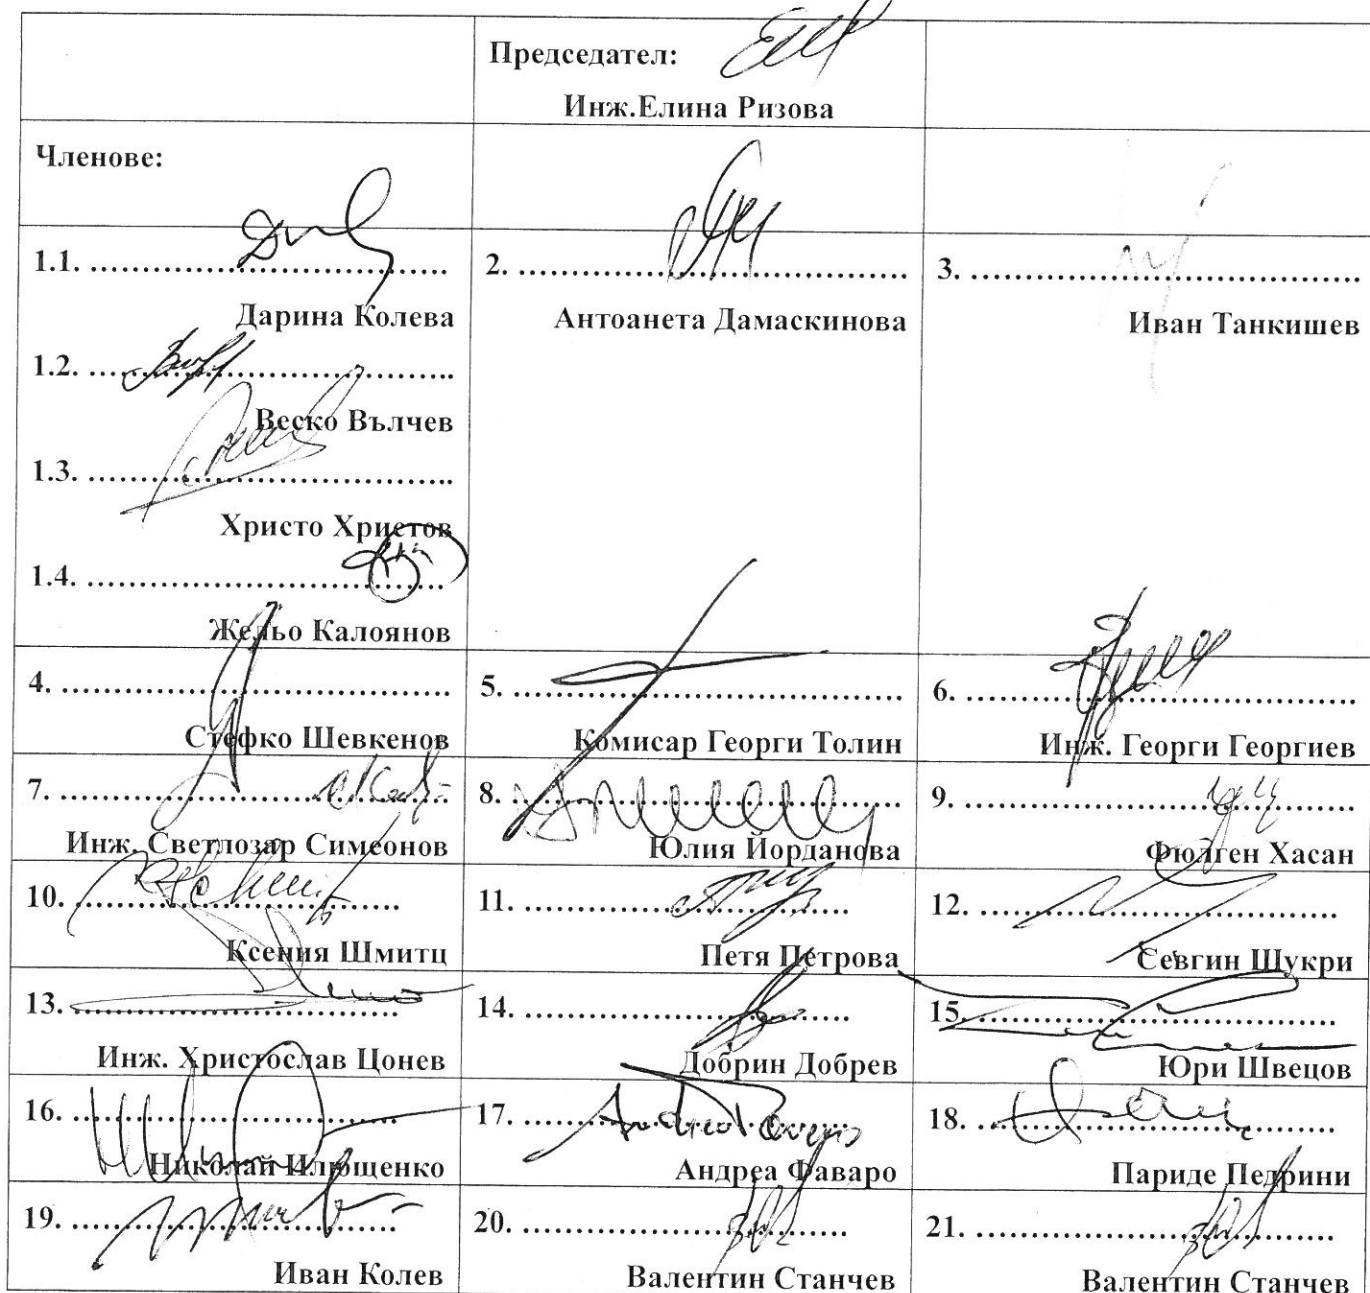 Председател:
Инж.Елина Ризова
Членове:
1.1. ........................................
Дарина Колева
1.2. ........................................
Веско Вълчев
1.3. ........................................
Христо Христов
1.4. ........................................
Жельо Калоянов
2. ........................................
Антоанета Дамаскинова
3. ........................................
Иван Танкишев
4. ........................................
Стефко Шевкенов
5. ........................................
Комисар Георги Толин
6. ........................................
Инж. Георги Георгиев
7. ........................................
Инж. Светлозар Симеонов
8. ........................................
Юлия Йорданова
9. ........................................
Фюлген Хасан
10. ........................................
Ксения Шмитц
11. ........................................
Петя Петрова
12. ........................................
Севгин Шукри
13. ........................................
Инж. Христослав Цонев
14. ........................................
Добрин Добрев
15. ........................................
Юри Швецов
16. ........................................
Николай Илющенко
17. ........................................
Андреа Фаваро
18. ........................................
Париде Педрини
19. ........................................
Иван Колев
20. ........................................
Валентин Станчев
21. ........................................
Валентин Станчев